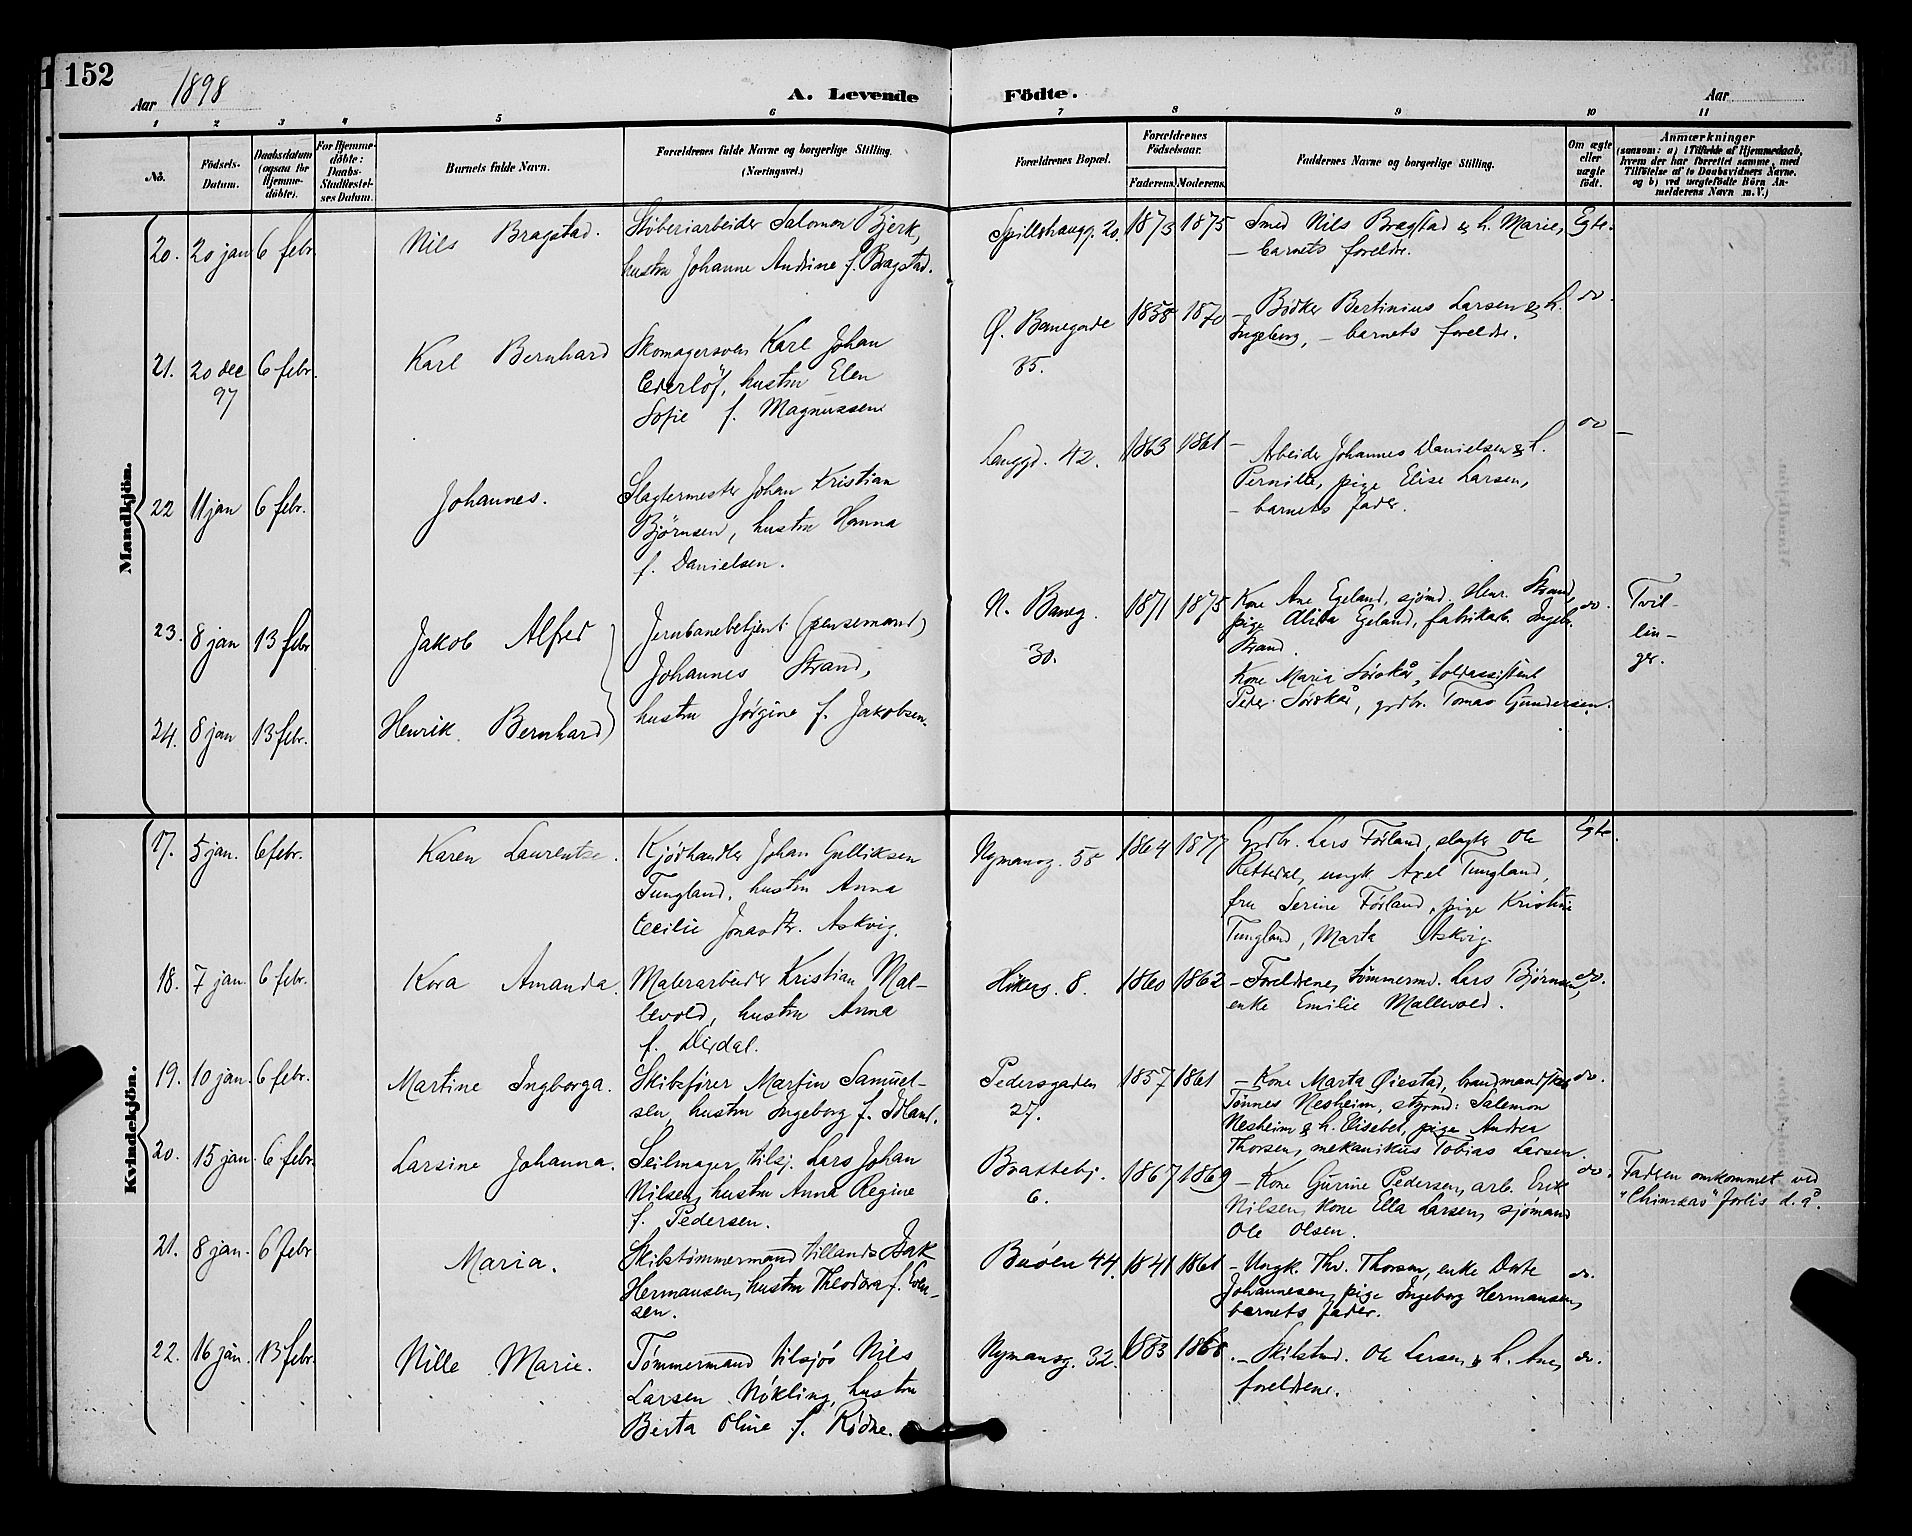 152
Aar 1898
A. Levende
Födte.
Aar
1 2 3 4 5 6 7 8 9 10 11
No.
Födsels-
Datum.
Daabsdatum
(ogsaa for
Hjemme-
döbte).
For Hjemme-
döbte:
Daabs-
Stadfæstel-
ses Datum.
Barnets fulde Navn.
Forældrenes fulde Navne og borgerlige Stilling.
(Næringsvei.)
Forældrenes Bopæl.
Forældrenes
Födselsaar.
Faderens. Moderens.
Faddernes Navne og borgerlige Stilling.
Om ægte
eller
uægte
födt.
Anmærkninger
(saasom: a) i Tilfælde af Hjemmedaab,
hvem der har forrettet samme, med
Tilföielse af to Daabsvidners Navne.
og b) ved uægtefödte Börn An-
melderens Navn m. V.)
Mandkjön.
20. 20 jan 6 febr. Nils Bragstad.
Stöberiarbeider Salomon Bjerk,
hustru Johanne Andrine f. Bragstad.
Spillehaugg. 20. 1873 1875
Smed Nils Bragstad & h. Marie,
– barnets foreldre.
Egte.
21. 20 dec 6 febr.
97
Karl Bernhard
Skomagersven Karl Johan
Cederlöf, hustru Elen
Sofie f. Magnussen
Ø. Banegade
35.
1858 1870
– Bødker Bertinius Larsen & h.
Ingeborg, – barnets foreldre.
do.
22 11 jan 6 febr. Johannes.
Slagtermester Johan Kristian
Björnsen, hustru Hanna
f. Danielsen.
Langgd. 42. 1863 1861
– Arbeider Johannes Danielsen & h.
Pernille, pige Elise Larsen,
– barnets fader.
do
23. 8 jan 13 febr Jakob Alfred
24. 8 jan 13 febr. Henrik Bernhard
Jernbanebetjent (pensemand)
Johannes Strand,
hustru Jørgine f. Jakobsen.
N. Baneg.
30.
1871 1875
Kone Ane Egeland, sjømd. Henr. Strand,
pige Alida Egeland, fabrikarb. Ingebr.
Strand.
Kone Maria Sørskår, toldassistent
Peder Sørskår, grdbr. Tomas Gundersen.
do.
Tvil-
lin-
ger.
Kvindekjön.
17. 5 jan. 6 febr. Karen Laurentse.
Kjødhandler Johan Gulliksen
Tungland, hustru Anna
Cecilie Jonasdtr. Askvig.
Nymansg. 58 1864 1877
Grdbr. Lars Førland, slagter Ole
Rettedal, ungk. Axel Tungland,
fru Serine Førland, pige Kristine
Tungland, Marta Askvig.
Egte.
18. 7 jan. 6 febr. Kora Amanda.
Malerarbeider Kristian Mal-
levold, hustru Anna
f. Dirdal.
Høkerg. 8. 1860 1862
– Foreldrene, tømmermd. Lars Bjørnsen,
enke Emilie Mallevold.
do.
19. 10 jan. 6 febr. Martine Ingborga.
Skibsfører Martin Samuel-
sen, hustru Ingeborg f. Idland.
Pedersgaden
27.
1857 1861
– Kone Marta Øiestad, brandmandskab
Tönnes Nesheim, styrmd: Salemon
Nesheim & h. Elisebet, pige Andrea
Thorsen, mekanikus Tobias Larsen.
do.
20. 15 jan. 6 febr. Larsine Johanna.
Seilmager tilsj. Lars Johan
Nilsen, hustru Anna Regine
f. Pedersen.
Brattebj.
6.
1867 1869
– Kone Gurine Pedersen, arb. Erik
Nilsen, kone Ella Larsen, sjömand
Ole Olsen.
do.
Faderen omkommet ved
"Chimæras" forlis d. å.
21. 8 jan. 6 febr Maria.
Skibstömmermand tillands Isak
Hermansen, hustru Theodora f. Even-
sen.
Buöen 44. 1841 1861
– Ungk. Thv. Thorsen, enke Dorte
Johannesen, pige Ingeborg Hermansen,
barnets fader.
do.
22. 16 jan. 13 febr. Nille Marie.
Tömmermand tilsjös Nils
Larsen Nökling, hustru
Berta Oline f. Rödne.
Nymansg. 32. 1853 1868
– Skibstmd. Ole Larsen & h. Ane,
foreldrene.
do.